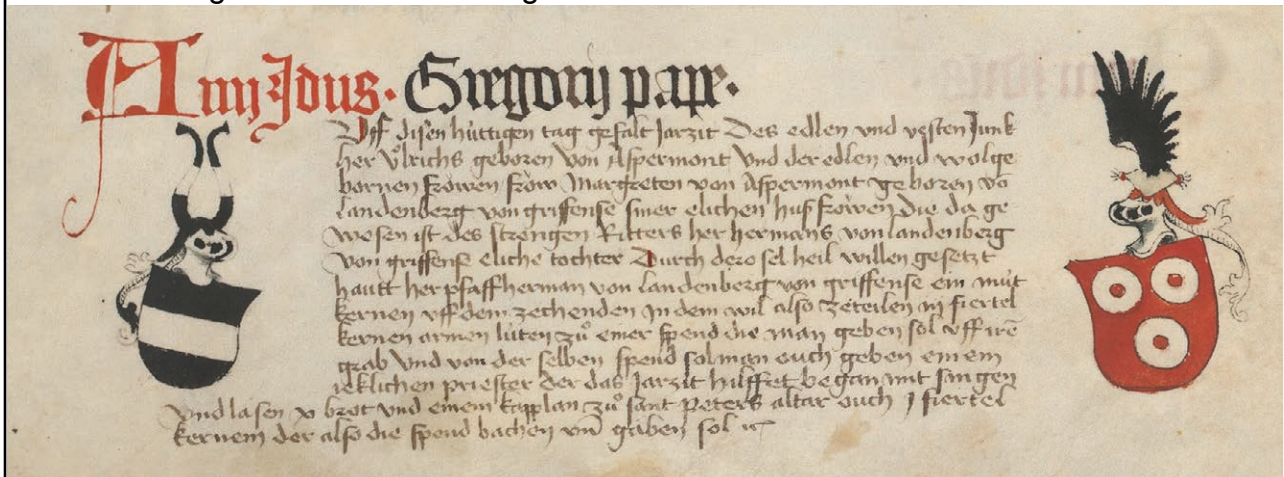 A iiij Idus · Gregorij pape ·
Uff disen hüttigen tag gefalt Jarzit Des edlen vnd vesten Junk
her Ůlrichs geboren von Aspermont Vnd der edlen vnd wolge
bornen frowen frow Margreten von Aspermont geboren vō
Landenberg von griffense siner elichen hus frowen Die da ge
wesen ist des strengen Ritters her hermans von landenberg
von griffense eliche tochter Durch dero sel heil willen gesetzt
hautt her pfaff herman von Landenberg von griffense ein müt
kernen vff dem zechenden In dem wil also ze teilen iij fiertel
kernen armen lüten zů einer spend die man geben sol vff irē
grab Vnd von der selben spend sol man ouch geben einem
ieklichen priester der das Jarzit hilffet began mit singen
Vnd lasen v brot vnd einem kapplan zů sant peters altar ouch j fiertel
kernem der also die spend bachen vnd gäben sol